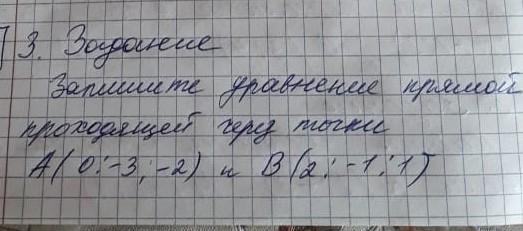 3. Задание
Запишите уравнение прямой
проходящей через точки
A( 0; -3; -2) и B(2; -1; 1)